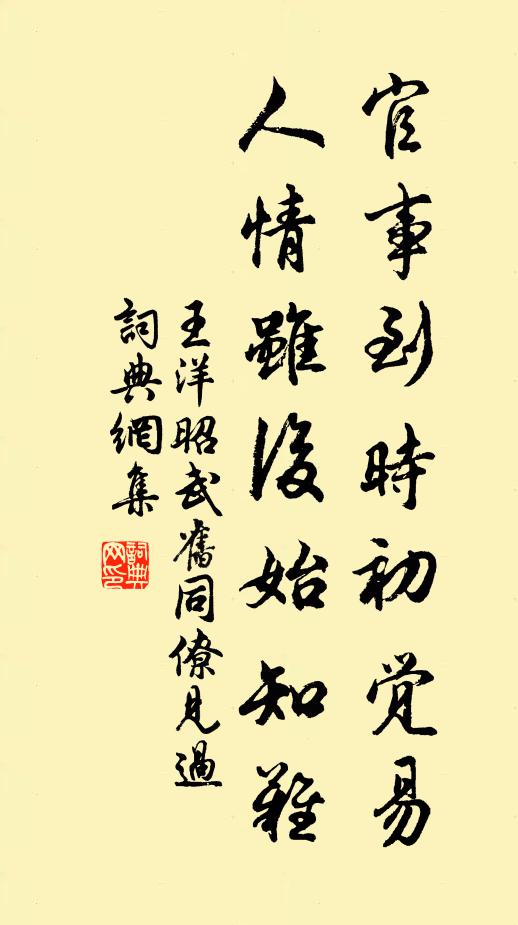 官事到時初觉易
人情雖後始知難
王洋昭武舊同僚見過
詞典網集
詞典
网印